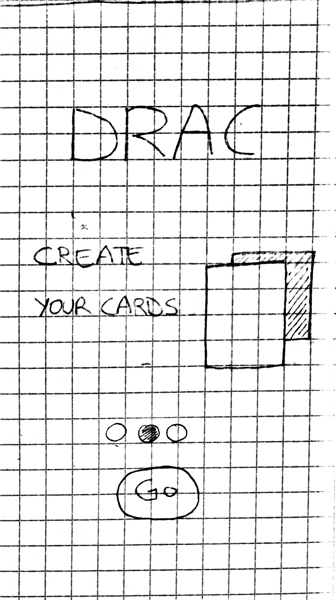 DRAC
CREATE
YOUR CARDS
Go